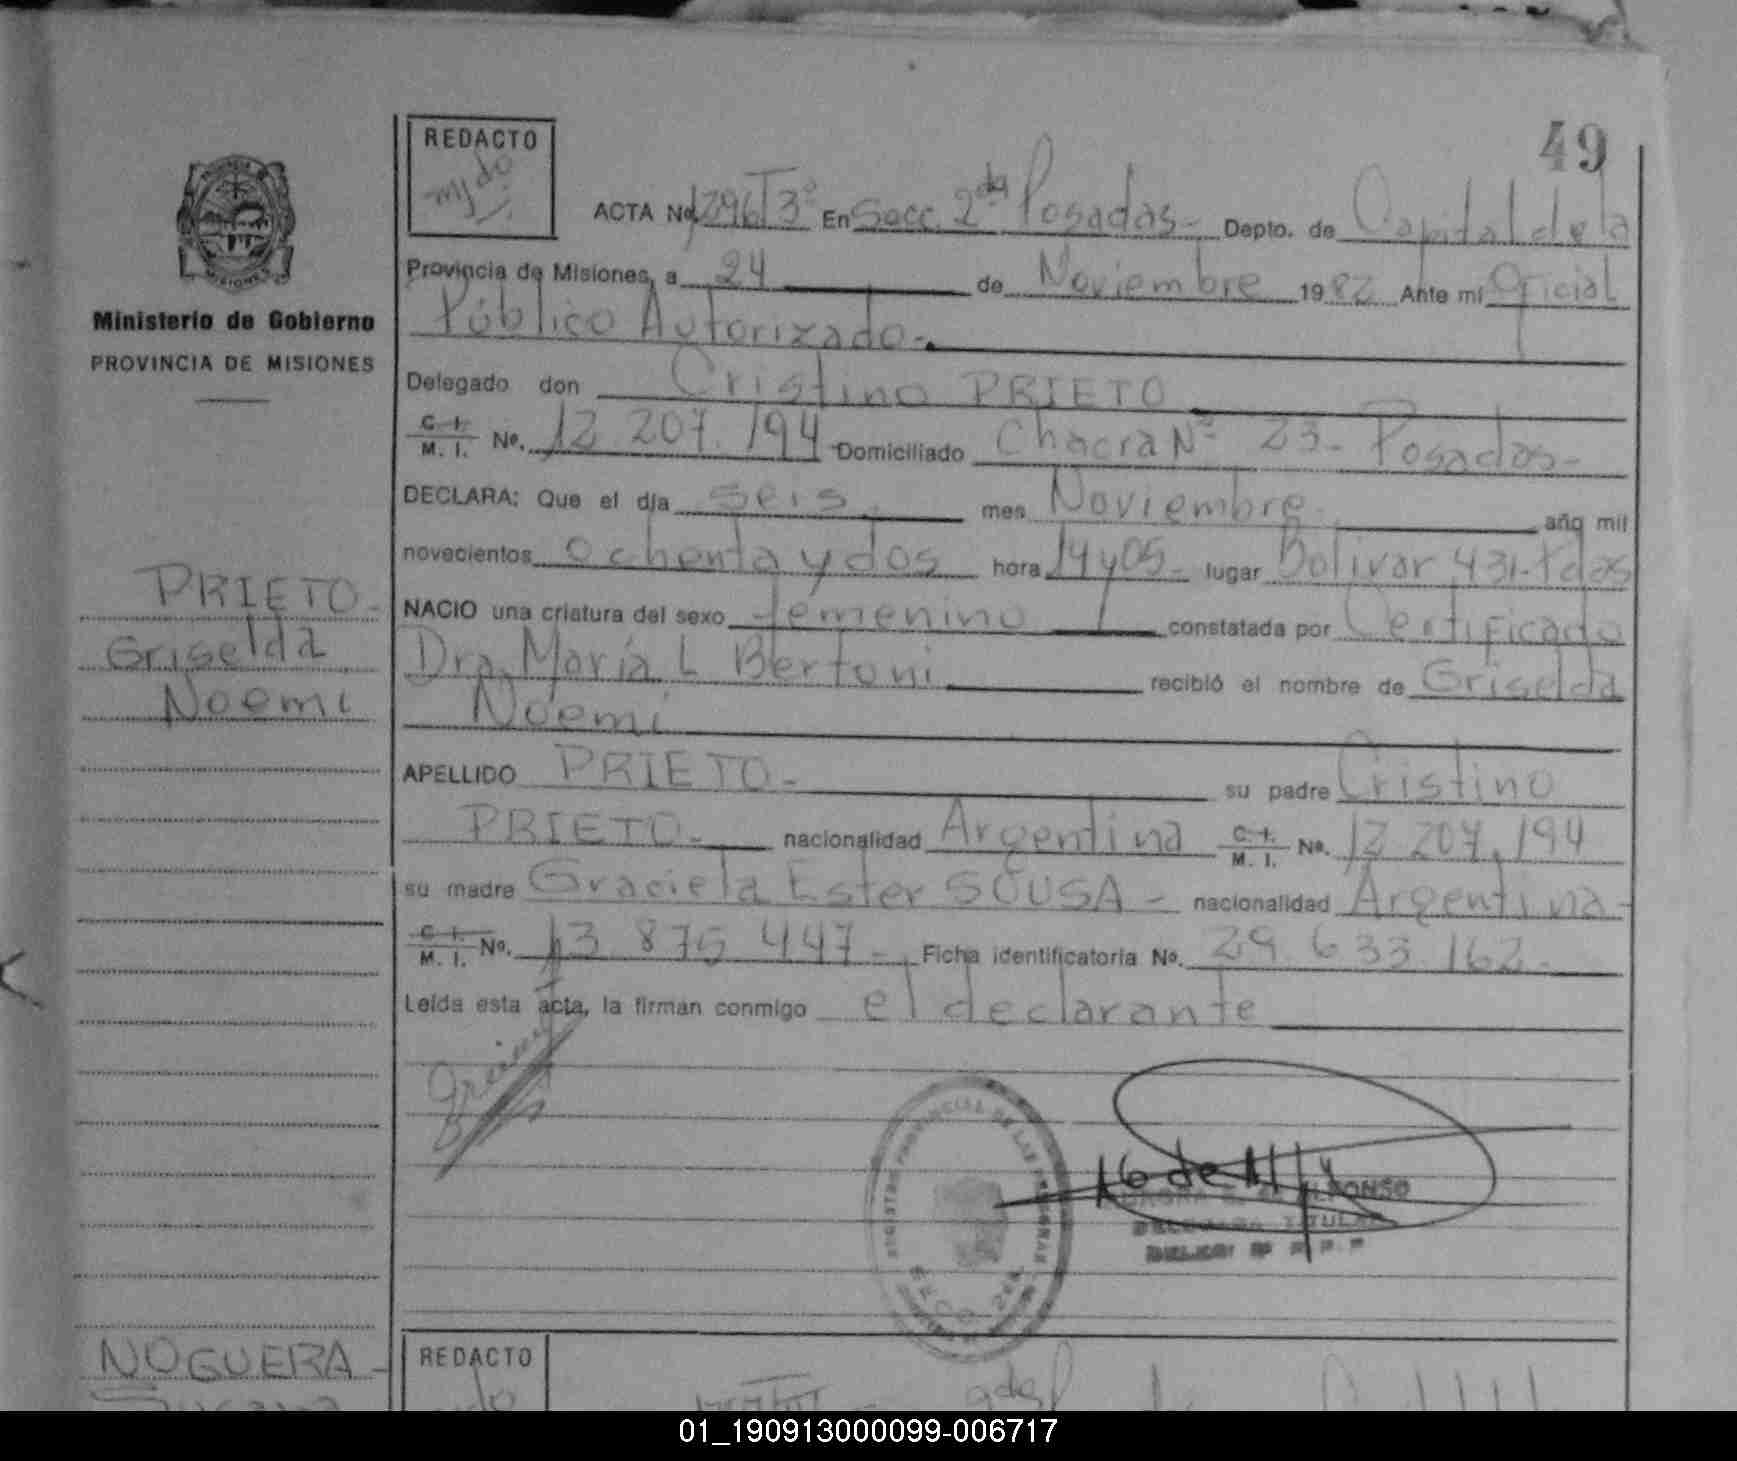 49
REDACTO
ACTA No 1296 T 3º En Secc. 2da Posadas - Depto. de Capital de la
Provincia de Misiones, a 24 de Noviembre 1982 Ante mí Oficial
Público Autorizado -
Delegado don Cristino PRIETO
C. I. M. I. Nº. 12.207.194 Domiciliado Chacra Nº 23 - Posadas -
DECLARA: Que el día seis mes Noviembre año mil
novecientos ochenta y dos hora 14 y 05 - lugar Bolivar 431 - Pdas
NACIO una criatura del sexo femenino constatada por Certificado
Dra. María L Bertoni recibió el nombre de Griselda
Noemi
APELLIDO PRIETO - su padre Cristino
PRIETO - nacionalidad Argentina C. I. M. I. Nº. 12.207.194
su madre Graciela Ester SOUSA - nacionalidad Argentina -
C. I. M. I. Nº. 13.875.447 - Ficha identificatoria No. 29.633.162 -
Leída esta acta, la firman conmigo el declarante
Ministerio de Gobierno
PROVINCIA DE MISIONES
PRIETO -
Griselda
Noemi
REGISTRO PROVINCIAL DE LAS PERSONAS
16 de
DELEGADA TITULAR
NOGUERA -
REDACTO
01_190913000099-006717